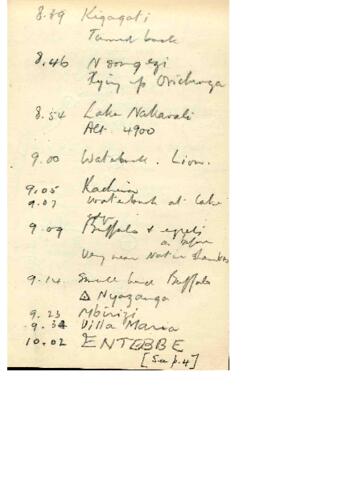 8.39 Kigagati
Turned back
8.46 Nsongezi
Flying up Orichinga
8.54 Lake Nakavali
Alt. 4900
9.00 Waterbuck. Lion.
9.05 Kachira
9.07 Waterbuck at lake
edge
9.09 Buffalo & egrets
as before
Very near Native Shambas
9.14 Small herd Buffalo
△ Nyazanga
9.23 Mbirizi
9.34 Villa Maria
10.02 ENTEBBE
[See p.4]